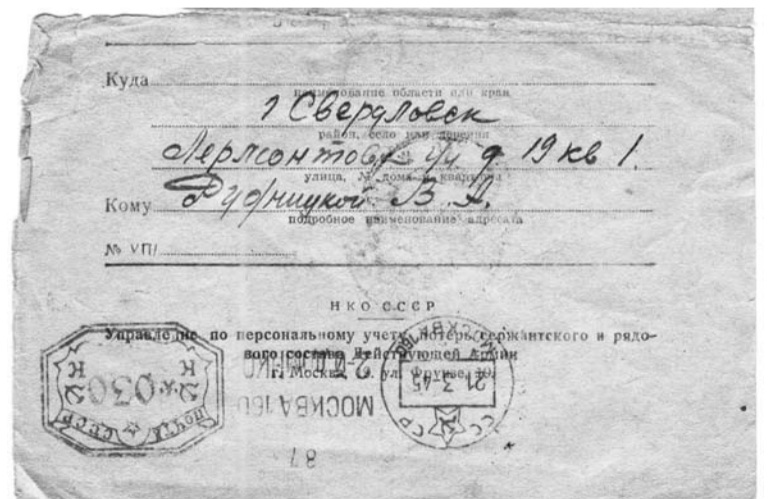 Куда
наименование области или края
г Свердловск
район, село или деревня
Лермонтовск ул д 19 кв 1.
улица, № дома и квартира
Кому Рудницкой В. А.
подробное наименование адресата
№ УП/
НКО СССР
Управление по персональному учету потерь сержантского и рядо-
вого состава Действующей Армии
г. Москва, 19, ул. Фрунзе, 19.
МОСКВА 160
21 3-45
СССР
К К
030
ПОЧТА СССР
МОСКВА 160
87